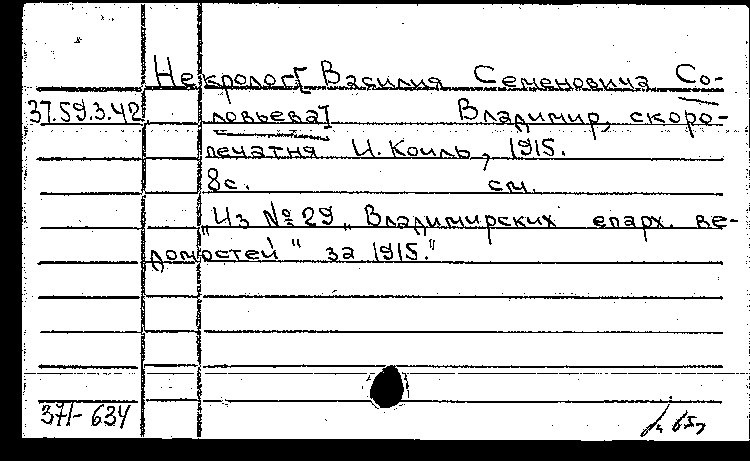 Некролог [Василия Семеновича Со-
37.59.3.42 ловьева] Владимир, скоро-
печатня И. Коиль, 1915.
8с. см.
"Из № 29 „Владимирских епарх. ве-
домостей" за 1915."
371-634